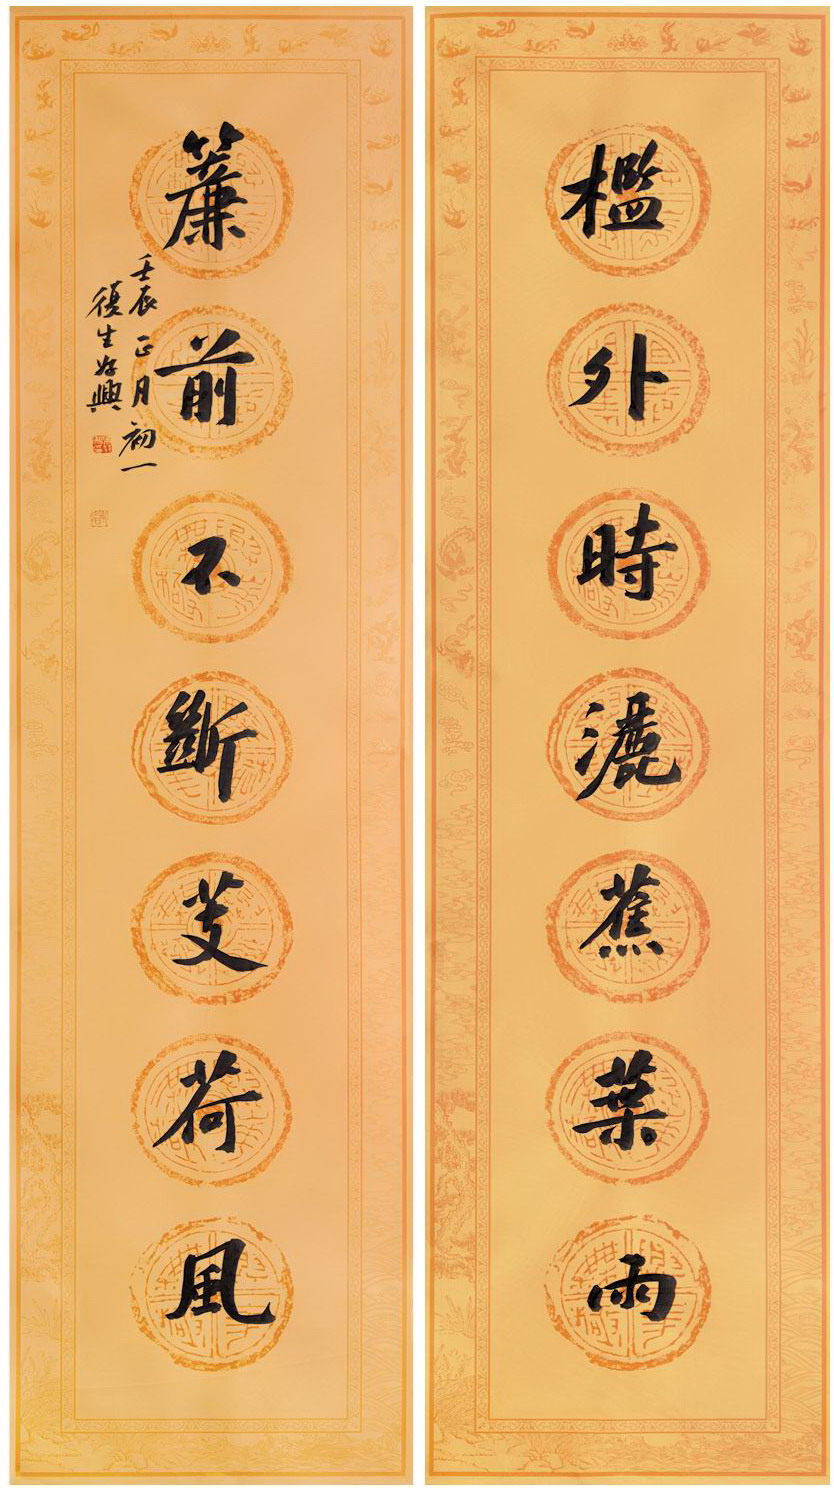 檻外時灑蕉葉雨
簾前不斷芰荷風
壬辰正月初一
復生好興